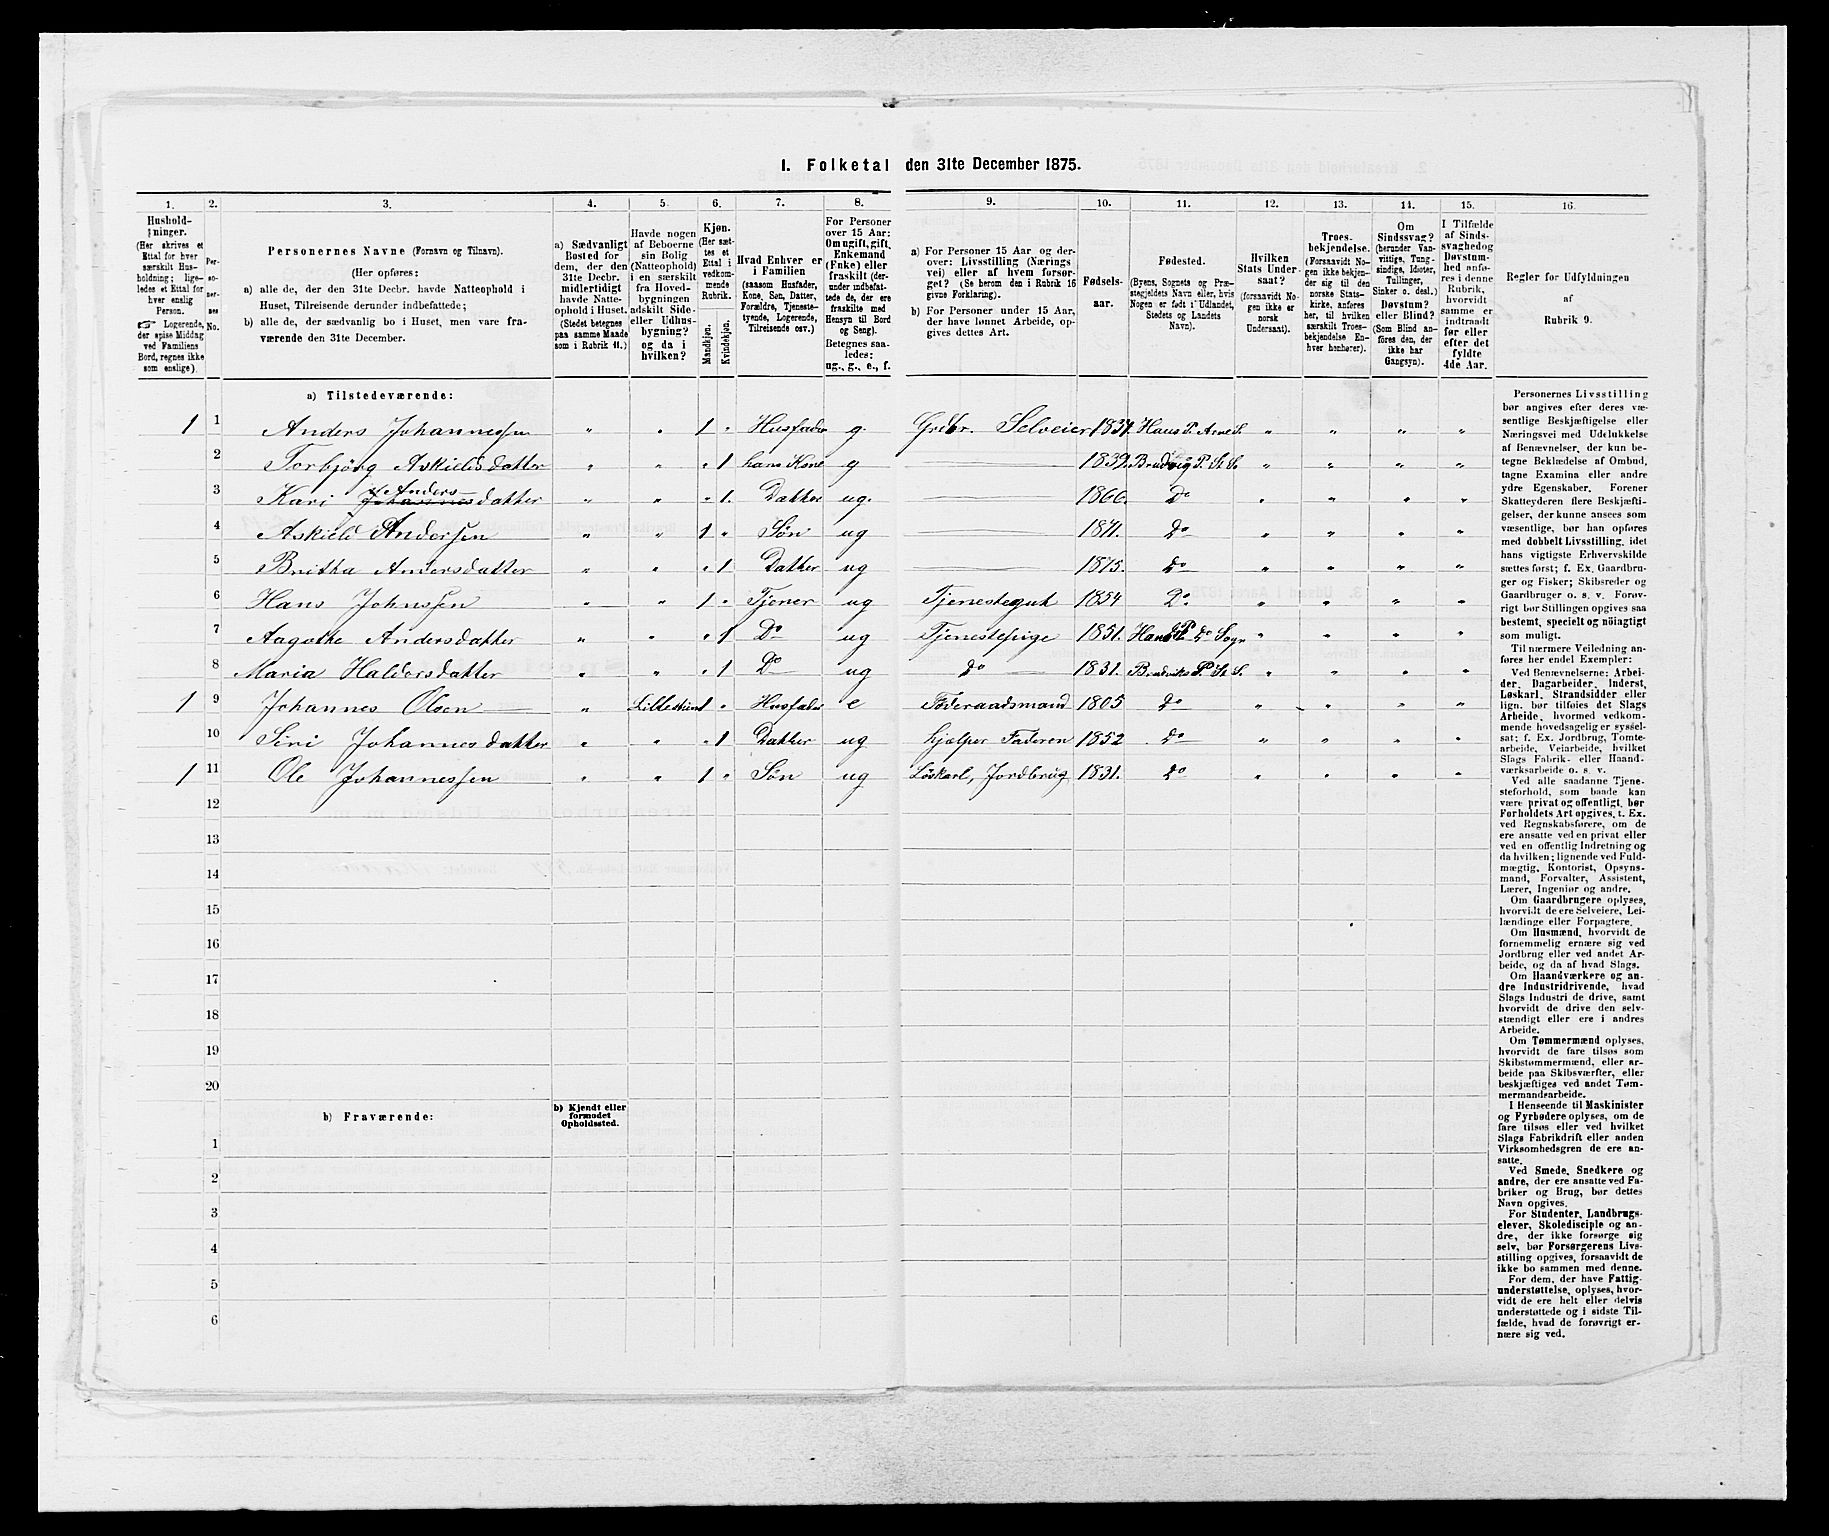 1. Folketal den 31te December 1875.
1. 2. 3. 4. 5. 6. 7. 8. 9. 10. 11. 12. 13. 14. 15. 16.
Hushold-
ninger.
(Her skrives et
Ettal for hver
særskilt Hus-
holdning; lige-
ledes et Ettal for
hver enslig
Person.
☞ Logerende,
der spise Middag
ved Familiens
Bord, regnes ikke
som enslige).
Per-
so-
ner-
nes
No.
Personernes Navne (Fornavn og Tilnavn).
(Her opføres:
a) alle de, der den 31te Decbr. havde Natteophold i
Huset, Tilreisende derunder indbefattede;
b) alle de, der sædvanlig bo i Huset, men vare fra-
værende den 31te December.
a) Sædvanligt
Bosted for
dem, der den
31te Decbr.
midlertidigt
havde Natte-
ophold i Huset.
(Stedet betegnes
paa samme Maade
som i Rubrik 11.)
Havde nogen
af Beboerne
sin Bolig
(Natteophold)
i en særskilt
fra Hoved-
bygningen
adskilt Side-
eller Udhus-
bygning?
og da i
hvilken?
Kjøn.
(Her sæt-
tes et
Ettal i
vedkom-
mende
Rubrik.
Mandkjøn.
Kvindekjøn.
Hvad Enhver er
i Familien
(saasom Husfader,
Kone, Søn, Datter,
Forældre, Tjeneste-
tyende, Logerende,
Tilreisende osv.)
For Personer
over 15 Aar:
Om ugift, gift,
Enkemand
(Enke) eller
fraskilt (der-
under indbefat-
tede de, der ere
fraskilte med
Hensyn til Bord
og Seng).
Betegnes saa-
ledes:
ug., g., e., f.
a) For Personer 15 Aar og der-
over: Livsstilling (Nærings
vei) eller af hvem forsør-
get? (Se herom den i Rubrik 16
givne Forklaring).
b) For Personer under 15 Aar,
der have lønnet Arbeide, op-
gives dettes Art.
Fødsels-
aar.
Fødested.
(Byens, Sognets og Præ-
stegjeldets Navn eller, hvis
Nogen er født i Udlandet,
Stedets og Landets
Navn).
Hvilken
Stats Under-
saat?
(forsaavidt No-
gen ikke er
norsk
Undersaat).
Troes-
bekjendelse.
(Forsaavidt No-
gen ikke bekjen-
der sig til den
norske Stats-
kirke, anføres
her, til hvilken
særskilt Troes-
bekjendelse En-
hver henhører).
Om
Sindssvag?
(herunder Van-
vittige, Tung-
sindige, Idioter,
Tullinger,
Sinker o. desl.)
Døvstum?
eller Blind?
(Som Blind an-
føres den, der
ikke har
Gangsyn).
I Tilfælde
af Sinds-
svaghed og
Døvstum-
hed anfø-
res i denne
Rubrik,
hvorvidt
samme er
indtraadt
før eller
efter det
fyldte
4de Aar.
Regler for Udfyldningen
af
Rubrik 9.
a) Tilstedeværende:
1 1 Anders Johannessen " " 1 " Husfader g. Grdbr. Selveier 1837. Haus P. Arne S. " " " "
2 Torbjørg Askieldsdatter " " " 1 hans Kone g 1839. Bruvig P. St. S. " " " "
3 Kari Johannesdatter Anders " " " 1. Datter ug. 1866. Do " " " "
4 Askield Andersen " " 1 " Søn ug 1871. Do " " " "
5 Britha Andersdatter " " " 1 Datter ug 1875. Do " " " "
6 Hans Johnssen " " 1 " Tjener ug Tjenestegut 1854 Do. " " " "
7 Aagothe Andersdatter " " " 1 Do ug Tjenestepige 1851. Haus P. do Sogn " " " "
8 Maria Haldorsdatter " " " 1 Do ug do 1831. Bruviks P. St. S. " " " "
1 9 Johannes Olsen " Lillestuen 1 " Husfader e Føderaadsmand 1805 Do " " " "
10 Siri Johannesdatter " " " 1 Datter ug hjælper Faderen 1852 do " " " "
1 11 Ole Johannessen " " 1 " Søn ug Löskarl, Jordbrug 1831. do " " " "
12
13
14
15
16
17
18
19
20
b) Fraværende:
b) Kjendt eller
formodet
Opholdssted.
1
2
3
4
5
6
Personernes Livsstilling
bør angives efter deres væ-
sentlige Beskjæftigelse eller
Næringsvei med Udelukkelse
af Benævnelser, der kun be-
tegne Beklædelse af Ombud,
tagne Examina eller andre
ydre Egenskaber. Forener
Skatteyderen flere Beskjæfti-
gelser, der kunne ansees som
væsentlige, bør han opføres
med dobbelt Livsstilling, idet
hans vigtigste Erhvervskilde
sættes først; f. Ex. Gaardbru-
ger og Fisker; Skibsreder og
Gaardbruger o. s. v. Forøv-
rigt bør Stillingen opgives saa
bestemt, specielt og nøiagtigt
som muligt.
Til nærmere Veiledning an-
føres her endel Exempler:
Ved Benævnelserne: Arbei-
der, Dagarbeider, Inderst,
Løskarl, Strandsidder eller
lign. bør tilføies det Slags
Arbeide, hvormed vedkom-
mende hovedsagelig er syssel-
sat; f. Ex. Jordbrug, Tomte-
arbeide, Veiarbeide, hvilket
Slags Fabrik- eller Haand-
værksarbeide o. s. v.
Ved alle saadanne Tjene-
steforhold, som baade kan
være privat og offentligt, bør
Forholdets Art opgives, t. Ex.
ved Regnskabsførere, om de
ere ansatte ved en privat eller
ved en offentlig Indretning og
da hvilken; lignende ved Fuld-
mægtig, Kontorist, Opsyns-
mand, Forvalter, Assistent,
Lærer, Ingeniør og andre.
Om Gaardbrugere oplyses,
hvorvidt de ere Selveiere, Lei-
lændinge eller Forpagtere.
Om Husmænd, hvorvidt de
fornemmelig ernære sig ved
Jordbrug eller ved andet Ar-
beide, og da af hvad Slags.
Om Haandværkere og an-
dre Industridrivende, hvad
Slags Industri de drive, samt
hvorvidt de drive den selv-
stændigt eller ere i andres
Arbeide.
Om Tømmermænd oplyses,
hvorvidt de fare tilsøs som
Skibstømmermænd, eller ar-
beide paa Skibsværfter, eller
beskjæftiges ved andet Tøm-
mermandsarbeide.
I Henseende til Maskinister
og Fyrbødere oplyses, om de
fare tilsøs eller ved hvilket
Slags Fabrikdrift eller anden
Virksomhedsgren de ere an-
satte.
Ved Smede, Snedkere og
andre, der ere ansatte ved Fa-
briker og Brug, bør dettes
Navn opgives.
For Studenter, Landbrugs-
elever, Skoledisciple og an-
dre, der ikke forsørge sig
selv, bør Forsørgerens Livs-
stilling opgives, forsaavidt de
ikke bo sammen med denne.
For dem, der have Fattig-
understøttelse, oplyses, hvor-
vidt de ere helt eller delvis
understøttede og i sidste Til-
fælde, hvad de forøvrigt er-
nære sig ved.